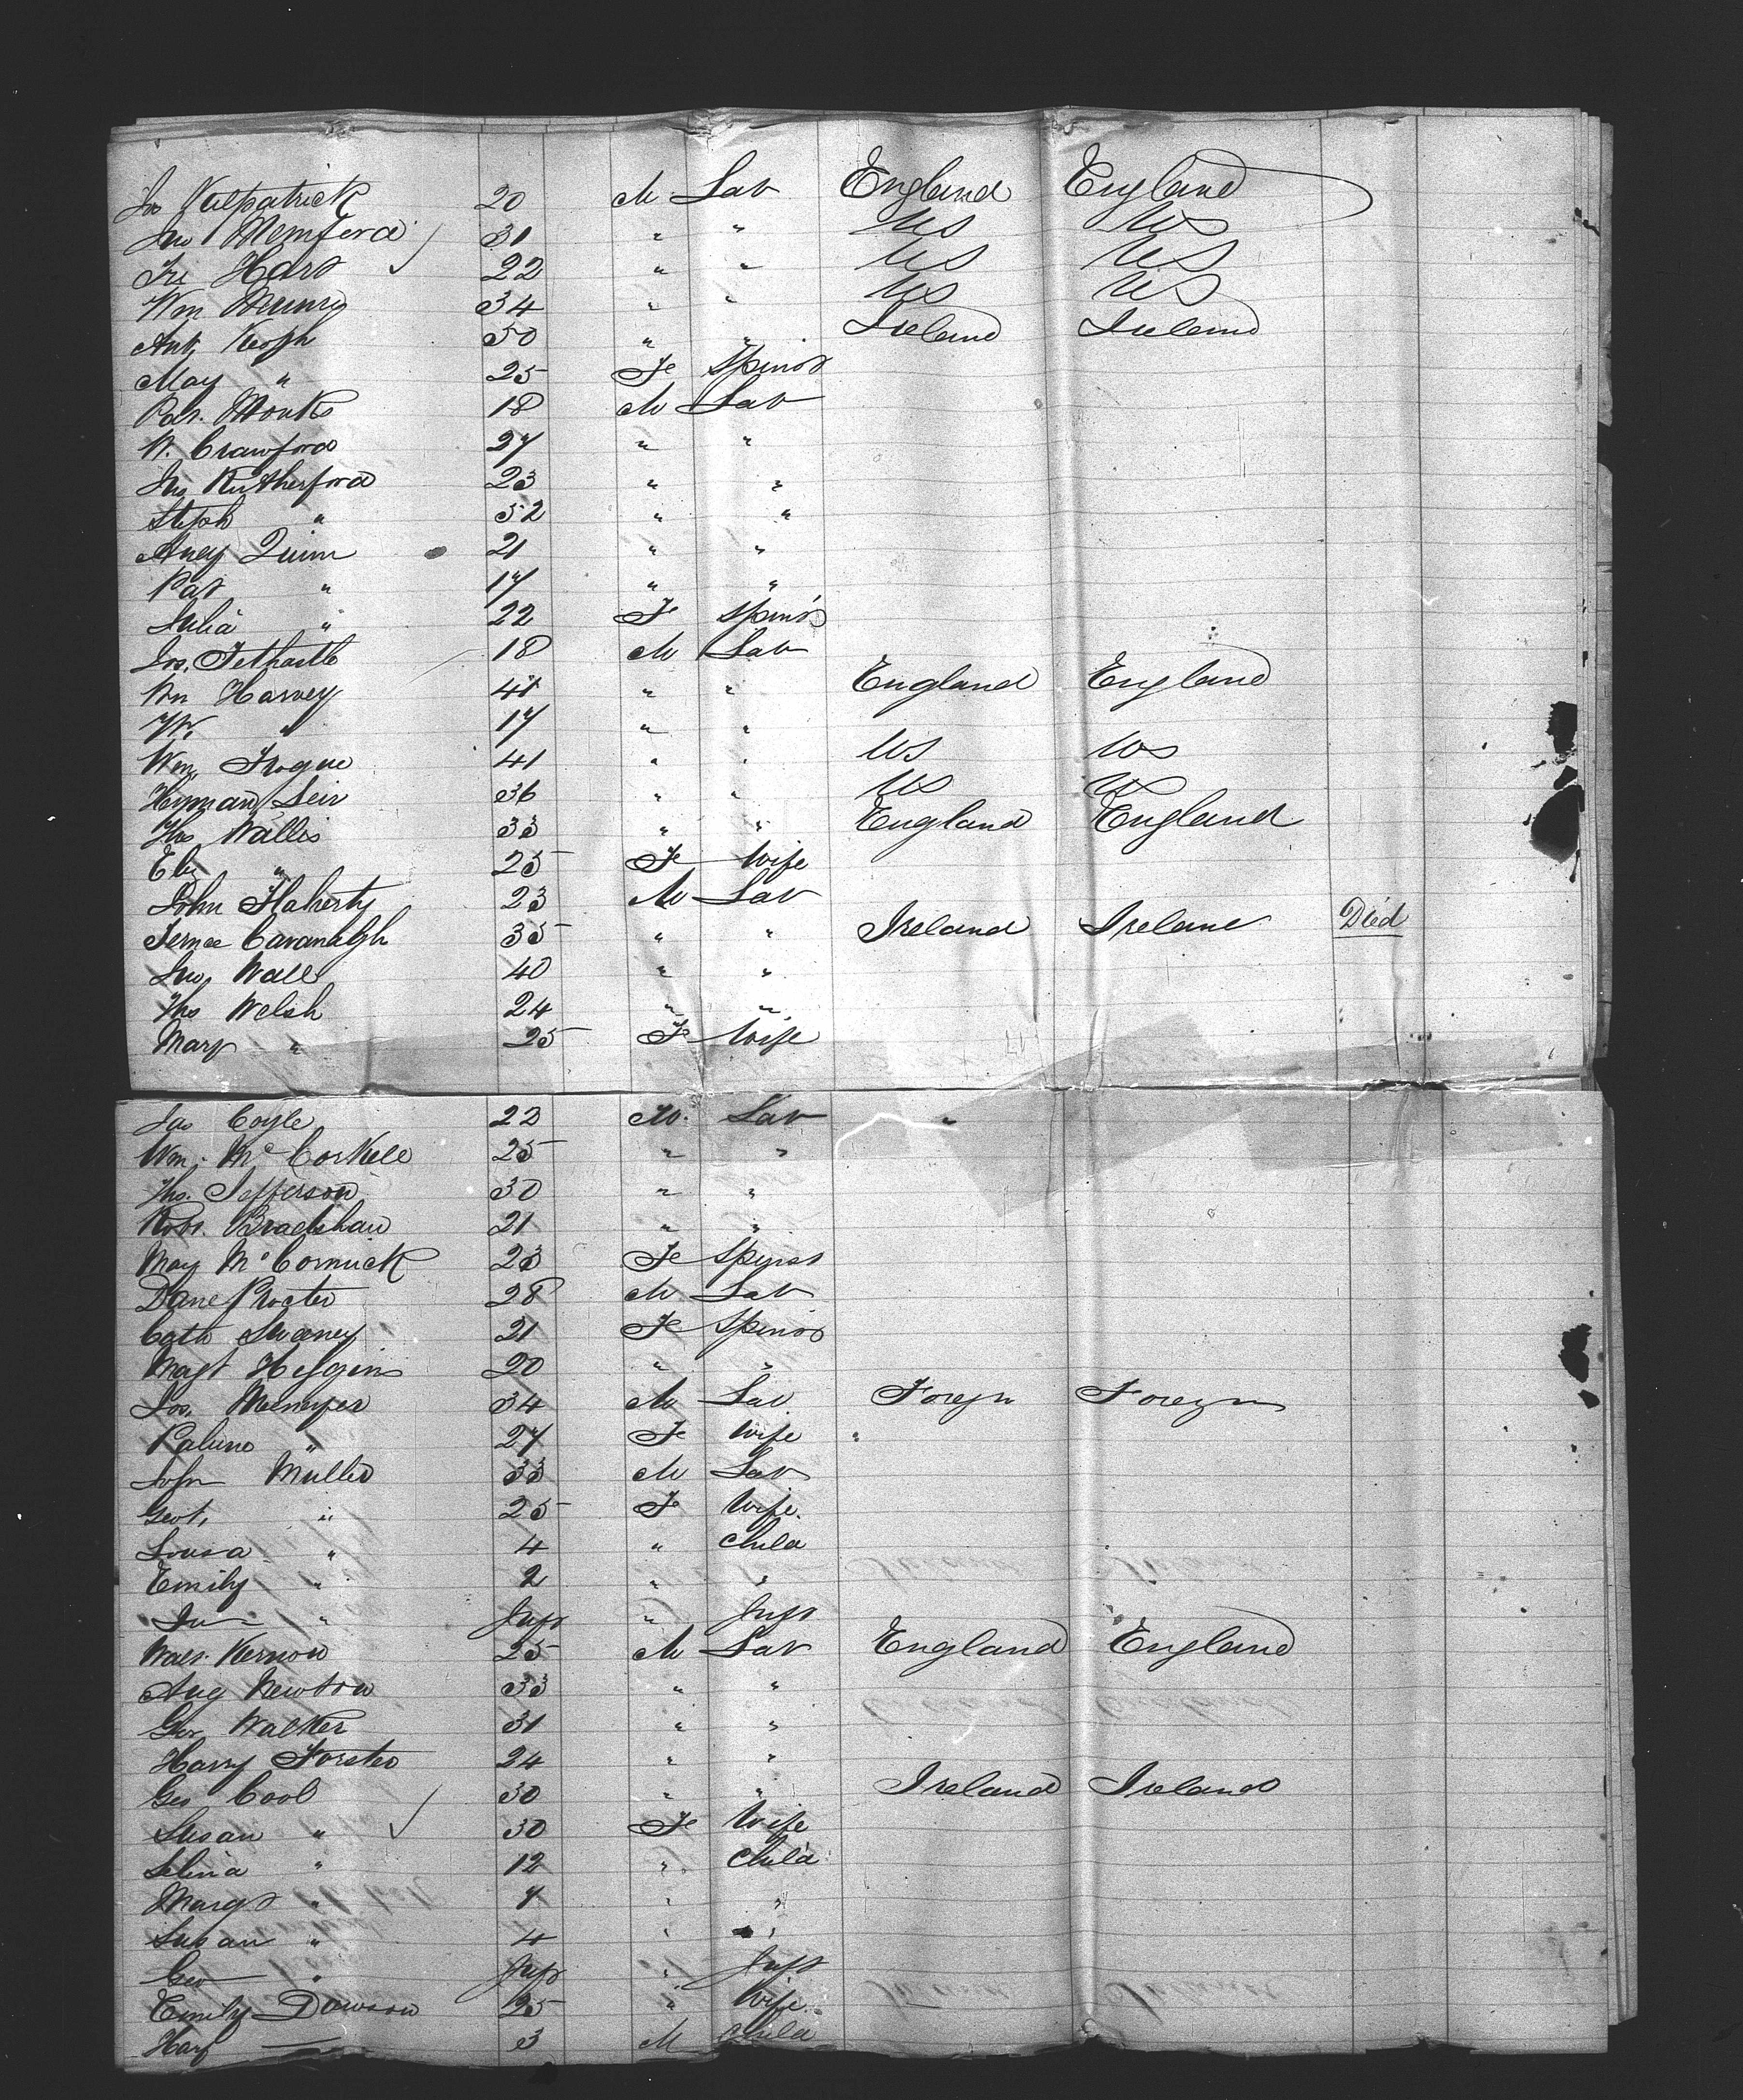 Jas Kilpatrick 20 M Lab England England
Jno Memford 31 " " US US
Fr Hart 22 " " US US
Wm 34 " " US US
Ant. Keogh 50 " " Ireland Ireland
May " 25 Fe Spinst
Pat. Monks 18 M Lab
W. Crawford 27 " "
Jno Rutherford 23 " "
Steph " 52 " "
Andy Quinn 21 " "
Pat " 17 " "
Julia " 22 Fe Spinst
Jos. 18 M Lab
Wm Harvey 41 " " England England
W. " 17 " "
Wm Frogue 41 " " US US
Hyman Leir 36 " " US US
Ths Wallis 33 " " England England
Eliz " 25 Fe Wife
John Flaherty 23 M Lab
Cavanagh 35 " " Ireland Ireland Died
Jno Wall 40 " "
Ths Welsh 24 " "
Mary " 25 Fe Wife
Jas Coyle 22 M. Lab "
Wm. McCorkell 25 " "
Ths. Jefferson 30 " "
Robt. Bradshaw 21 " "
May McCormick 23 Fe Spinst
Dane Procter 28 M Lab
Cath Sweeney 21 Fe Spinst
Magt Higgins 20 " "
Jos. 34 M Lab Foregn Foregn
Paline " 27 Fe Wife
John Muller 33 M Lab
Gert. " 25 Fe Wife.
Lousa " 4 " Child
Emily " 2 " "
" Inft " Inft
Walt. Vernon 25 M Lab England England
Aug Newton 33 " "
Geo Walker 31 " "
Harry Forster 24 " "
Geo Cool 30 " " Ireland Ireland
Susan " 30 Fe Wife
Selina " 12 " Child
Margt " 7 " "
Susan " 4 " "
Geo " Inft " Inft
Emily Dawson 25 " Wife.
Harry — 3 M Child